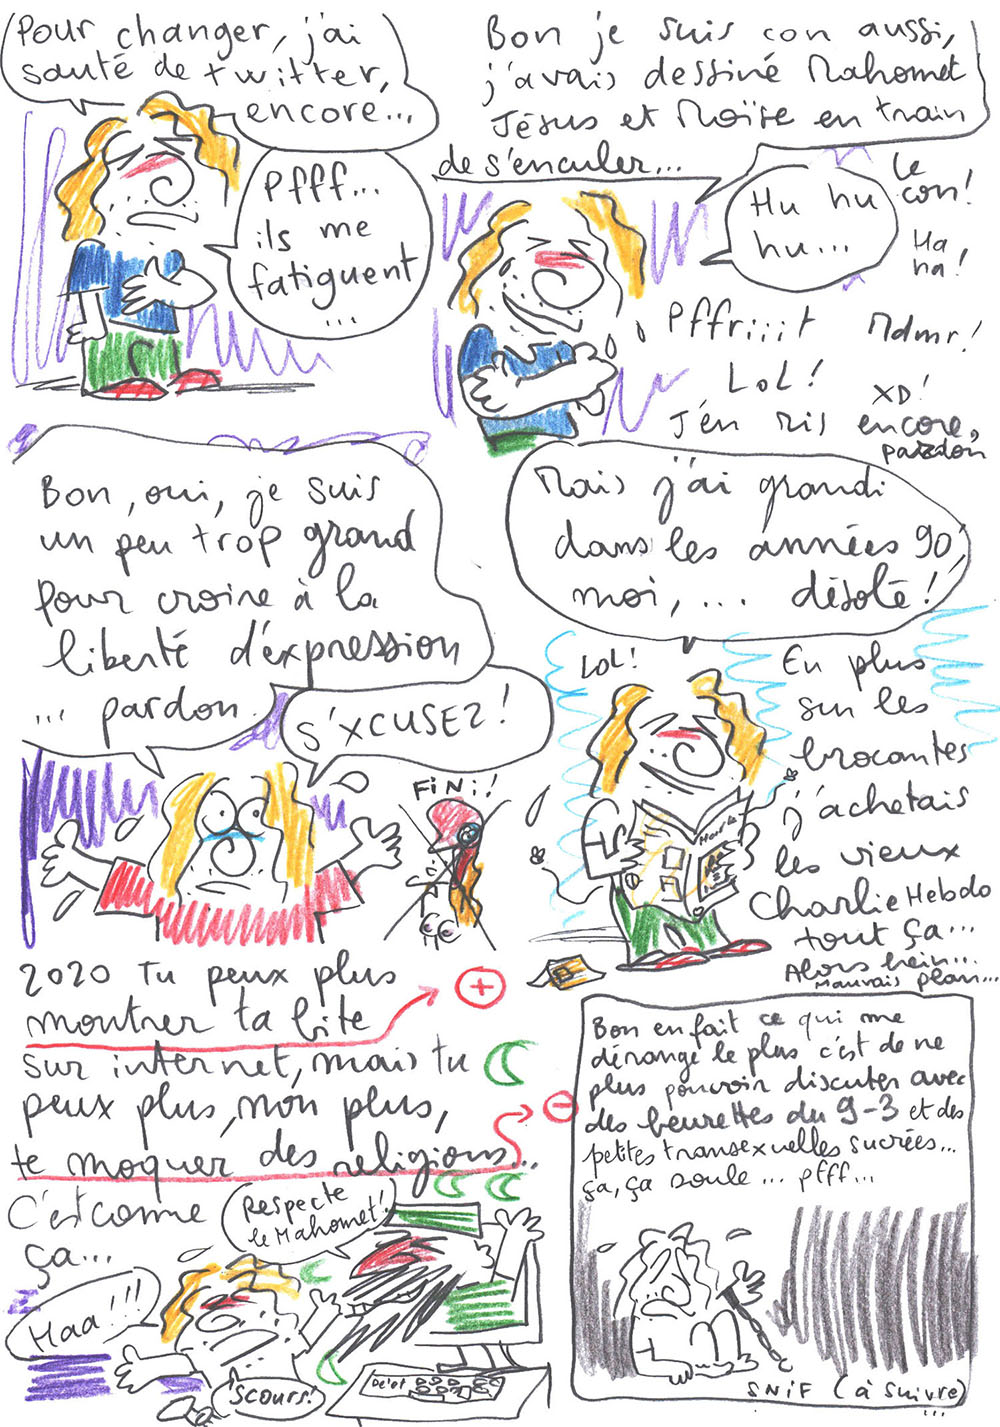 Pour changer, j'ai
sauté de twitter,
encore...
Pfff...
ils me
fatiguent
...
Bon je suis con aussi,
j'avais dessiné Mahomet
Jésus et Moïse en train
de s'enculer...
Hu hu
hu...
Le
con!
Ha
ha!
Pffriiit
Mdmr!
LoL!
XD!
J'en ris encore,
pardon
Bon, oui, je suis
un peu trop grand
pour croire à la
liberté d'expression
... pardon.
S'XCUSEZ!
FiNi!!
Mais j'ai grandi
dans les années 90,
moi, ... désolé!
LoL!
En plus
sur les
brocantes
j'achetais
les vieux
Charlie Hebdo
tout ça...
Alors hein...
Mauvais plan...
2020 Tu peux plus
montrer ta bite
+
sur internet, mais tu
peux plus, non plus,
-
te moquer des religions...
C'est comme
ça...
Respecte
le Mahomet!
Haa!!!
'SCOURS!
Bon en fait ce qui me
dérange le plus c'est de ne
plus pouvoir discuter avec
des beurettes du 9-3 et des
petites transexuelles sucrées...
ça, ça soule... pfff...
SNiF (à suivre)
...